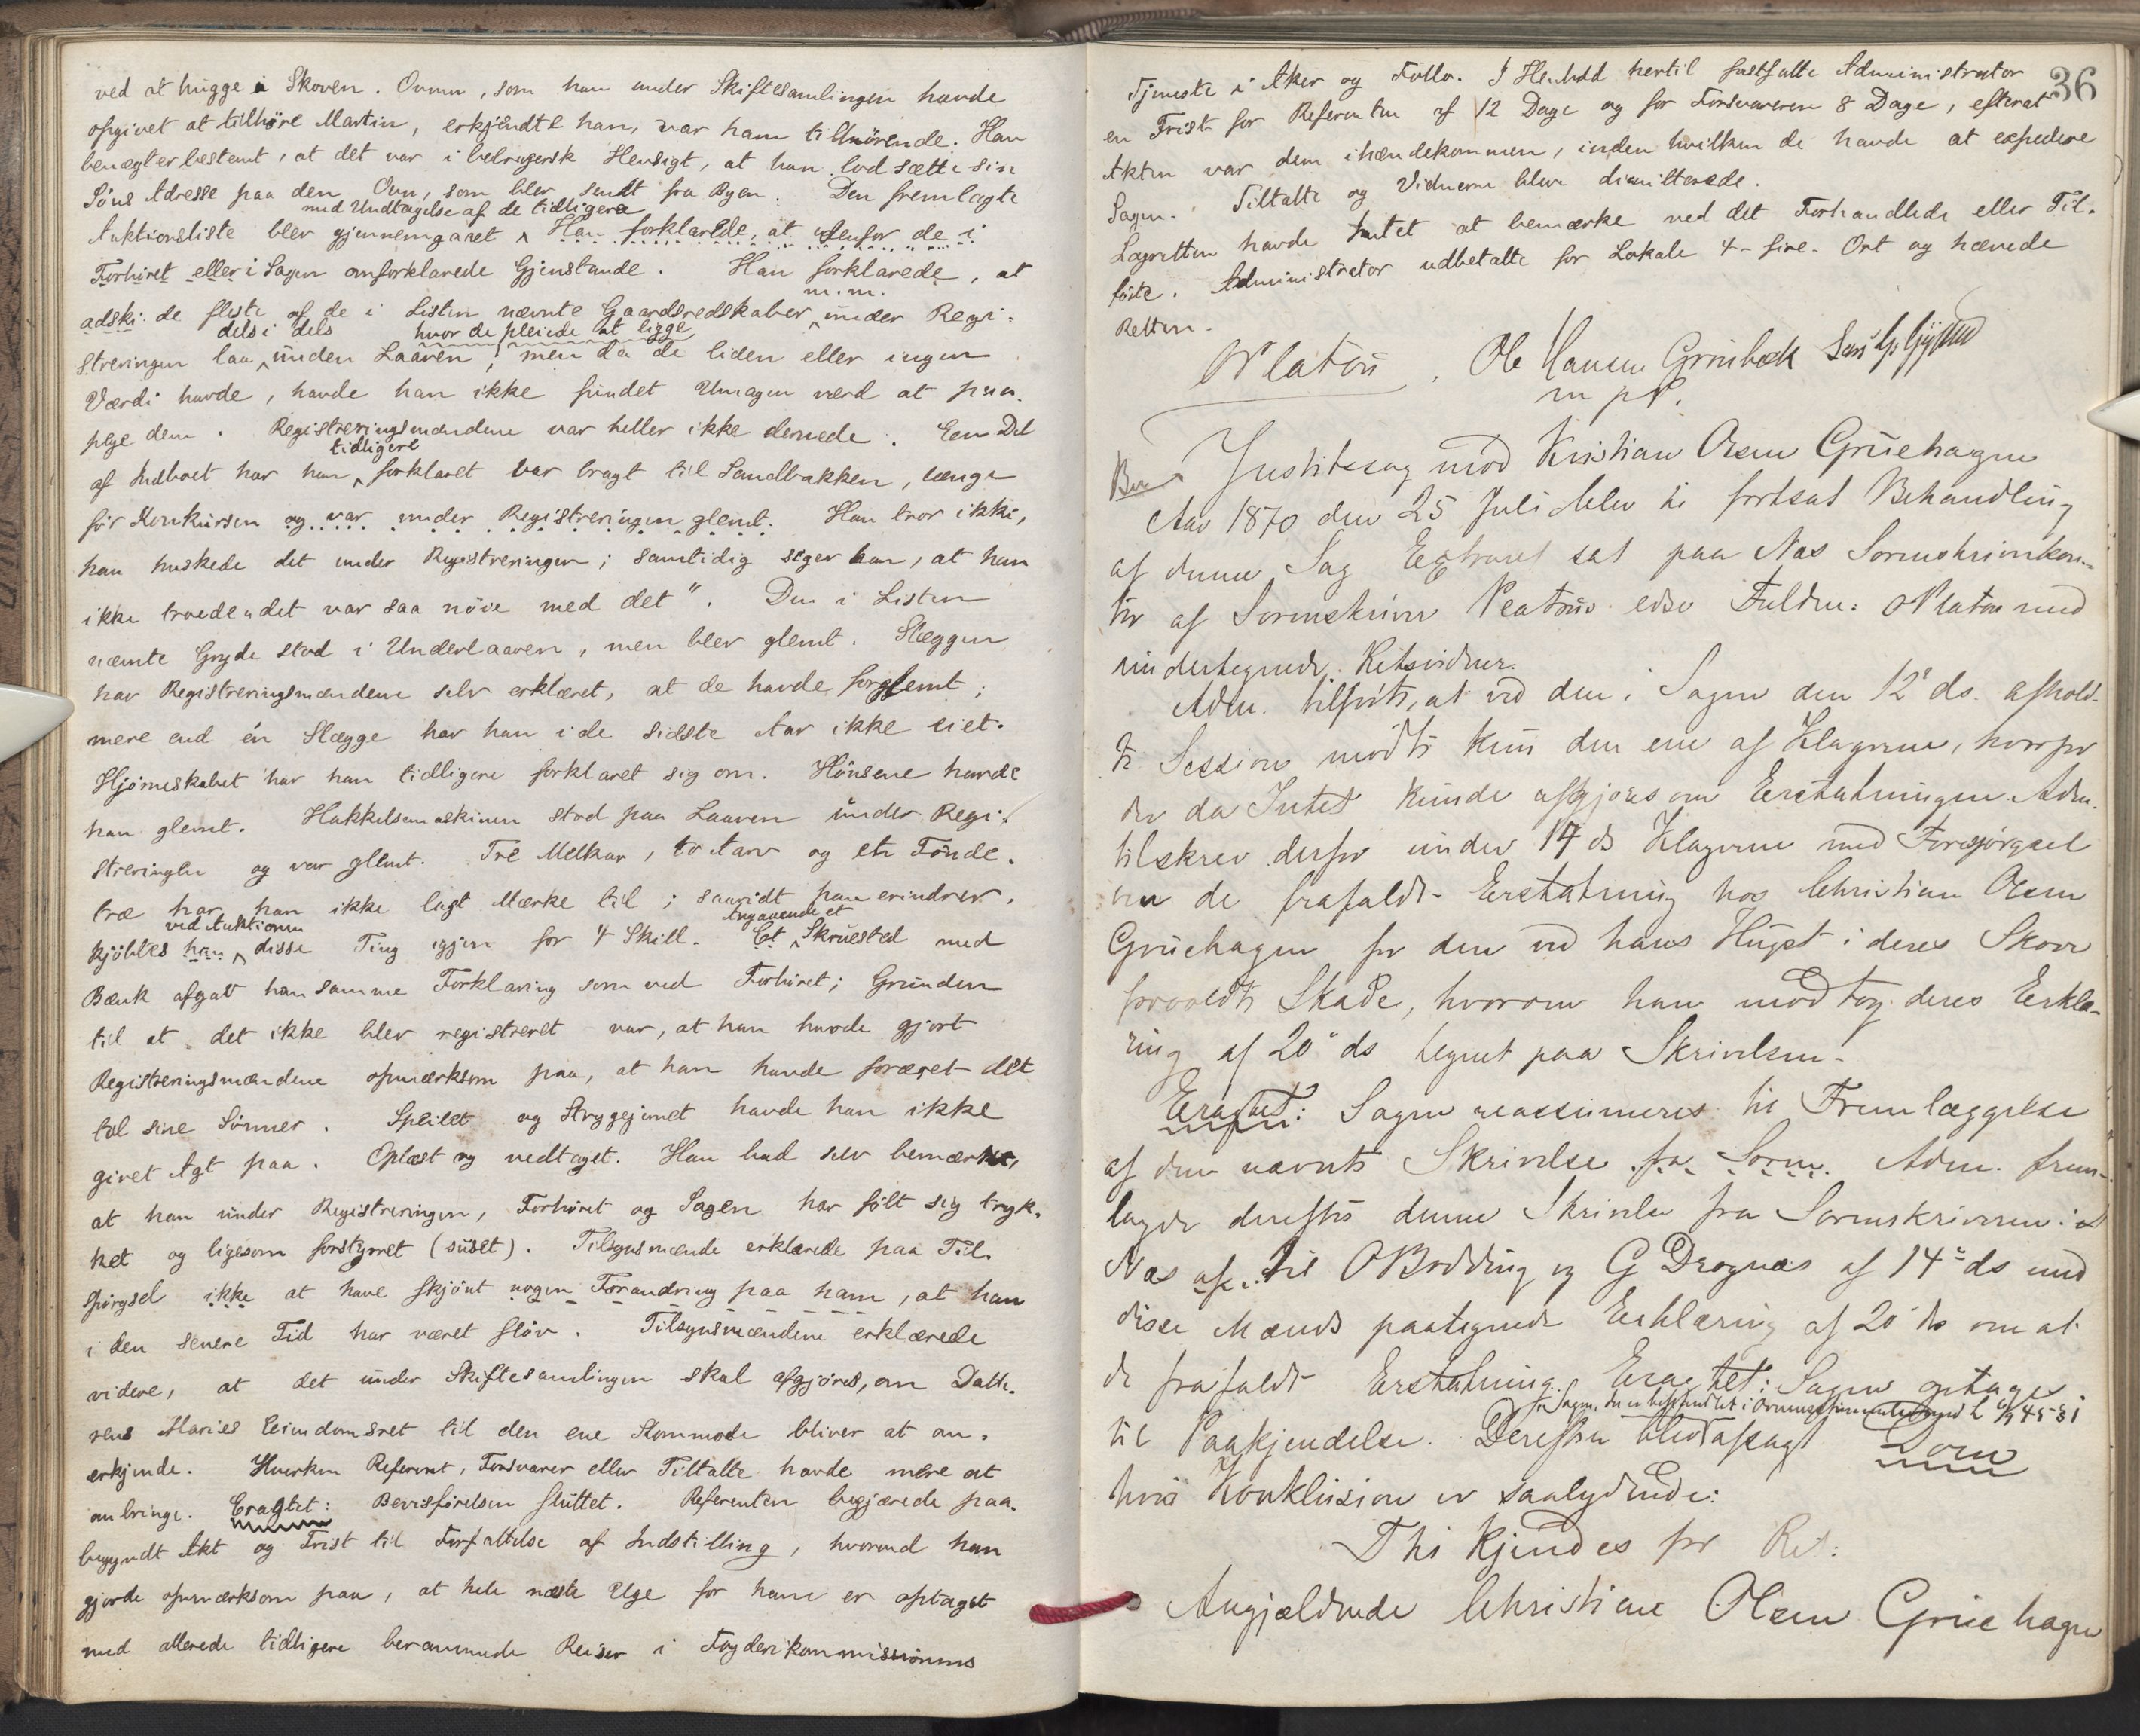 ved at hugge i Skoven. Ovnen, som han under Skiftesamlingen havde
opgivet at tilhøre Martin, erkjendte han, var ham tilhørende. Han
benægter bestemt, at det var i bedragersk Hensigt, at han lod sætte sin
Søns Adresse paa den Ovn, som blev sendt fra Byen. Den fremlagte
med Undtagelse af de tidligere
Auktionsliste blev gjennemgaaet Han forklarede, at udenfor de i
Forhøret eller i Sagen omforklarede Gjenstande. Han forklarede, at
m.m.
adski. de fleste af de i Listen nævnte Gaardsredskaber under Regi-
dels i dels hvor de pleiede at ligge
streringen laa unden Laaven, men da de liden eller ingen
Værdi havde, havde han ikke fundet Umagen værd at paa-
pege dem. Registreringsmændene var heller ikke dernede. Een Del
tidligere
af Indboet har han forklaret var bragt til Sandbakken, længe
før Konkursen og var under Registreringen glemt. Han tror ikke,
han huskede det under Registreringen; samtidig siger han, at han
ikke troede "det var saa nøie med det". Den i Listen
nævnte Gryde stod i Underlaaven, men blev glemt. Slæggen
har Registreringsmændene selv erklæret, at de havde forglemt;
mere end én Slægge har han i de sidste Aar ikke eiet.
Hjørneskabet har han tidligere forklaret sig om. Hønsene havde
han glemt. Hakkelsemaskinen stod paa Laaven under Regi-
streringen og var glemt. Tre Melkar, to Aarv og en Tønde-
træ har han ikke lagt Mærke til; saavidt han erindrer,
ved Auktionen Angaaende et
kjøbtes han disse Ting igjen for 4 Skill. Et Skruested med
Bænk afgav han samme Forklaring som ved Forhøret; Grunden
til at det ikke blev registreret var, at han havde gjort
Registreringsmændene opmærksom paa, at han havde foræret det
til sine Sønner. Speilet og Strygejernet havde han ikke
givet Agt paa. Oplæst og vedtaget. Han bad selv bemærket,
at han under Registreringen, Forhøret og Sagen har følt sig tryk-
ket og ligesom forstyrret (suset). Tilsynsmænde erklærede paa Til-
spørgsel ikke at have skjønt nogen Forandring paa ham, at han
i den senere Tid har været sløv. Tilsynsmændene erklærede
videre, at det under Skiftesamlingen skal afgjøres, om Datte-
rens Maries Eiendomsret til den ene Kommode bliver at an-
erkjende. Hverken Referent, Forsvarer eller Tiltalte havde mere at
anbringe. Eragtet: Bevisførelsen sluttet. Referenten begjærede paa-
begyndt Akt og Frist til Forfattelse af Indstilling, hvorved han
gjorde opmærksom paa, at hele næste Uge for ham er optaget
med allerede tidligere berammede Reiser i Fogderikommissionens
36
Tjeneste i Aker og Follo. I Henhold hertil fastsatte Administrator
en Frist for Referenten af 12 Dage og for Forsvareren 8 Dage, efterat
Akten var dem ihændekommen, inden hvilken de havde at expedere
Sagen. Tiltalte og Vidnerne bleve dimitterede.
Lagretten havde Intet at bemærke ved det Forhandlede eller Til-
førte. Administrator udbetalte for Lokale 4 - fire - Ort og hævede
Retten.
O Platou. Ole Hansen Grinbæk
m p P.
Justitssag mod Kristian Olsen Gruehagen
Aar 1870 den 25 Juli blev til fortsat Behandling
af denne Sag Extraret sat paa Nas Sorenskriverkon-
tor af Sorenskriver edsv Fuldm: O Platou med
undertegnede Retsvidner.
Adm. tilførte, at ved den i Sagen den 12e ds. afhold-
te Session mødte kun den ene af Klagerne, hvorfor
der da Intet kunde afgjøres om Erstatningen. Adm.
tilskrev derfor under 14 ds Klagerne med Forespørgsel
om de frafaldt Erstatning hos Christian Olsen
Gruehagen for den ved hans Hugst i deres Skove
forvoldte Skade, hvorom han modtog deres Erklæ-
ring af 20e ds tegnet paa Skrivelsen.
Eragtet: Sagen reassumeres til Fremlæggelse
af den nævnte Skrivelse fra Sorm. Adm. frem-
lagde derefter denne Skrivelse fra Sorenskriveren i
Nas til O Bodding og G Dragnæs af 14e ds med
disse Mænds paategnede Erklæring af 20 ds om at
de frafaldt Erstatning. Eragtet: Sagen optages
til Paakjendelse. Derefter blev afsagt Dom
hvis Konklusion er saalydende:
Thi kjendes for Ret:
Angjældende Christian Olsen Gruehagen